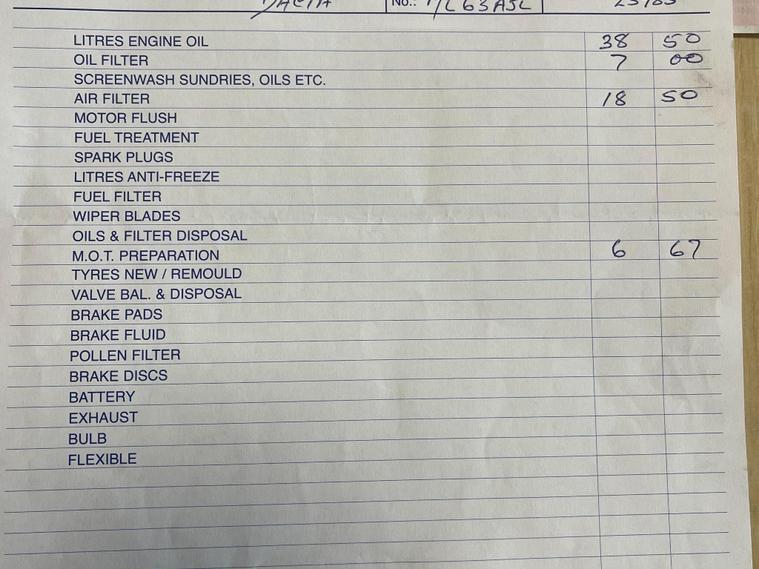 DACIA No.: ML63ASL
LITRES ENGINE OIL 38 50
OIL FILTER 7 00
SCREENWASH SUNDRIES, OILS ETC.
AIR FILTER 18 50
MOTOR FLUSH
FUEL TREATMENT
SPARK PLUGS
LITRES ANTI-FREEZE
FUEL FILTER
WIPER BLADES
OILS & FILTER DISPOSAL
M.O.T. PREPARATION 6 67
TYRES NEW / REMOULD
VALVE BAL. & DISPOSAL
BRAKE PADS
BRAKE FLUID
POLLEN FILTER
BRAKE DISCS
BATTERY
EXHAUST
BULB
FLEXIBLE